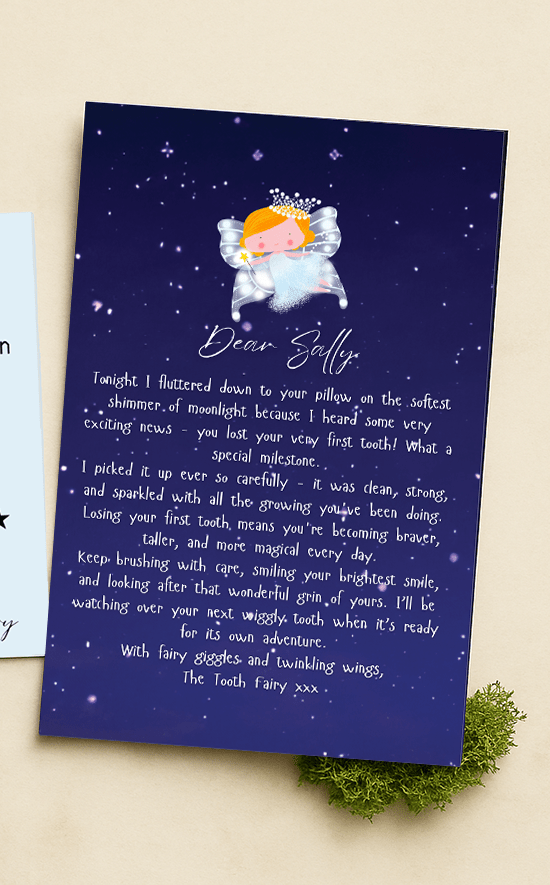 Dear Sally
Tonight I fluttered down to your pillow on the softest
shimmer of moonlight because I heard some very
exciting news - you lost your very first tooth! What a
special milestone.
I picked it up ever so carefully - it was clean, strong,
and sparkled with all the growing you've been doing.
Losing your first tooth means you're becoming braver,
taller, and more magical every day.
Keep brushing with care, smiling your brightest smile,
and looking after that wonderful grin of yours. I'll be
watching over your next wiggly tooth when it's ready
for its own adventure.
With fairy giggles and twinkling wings,
The Tooth Fairy xxx